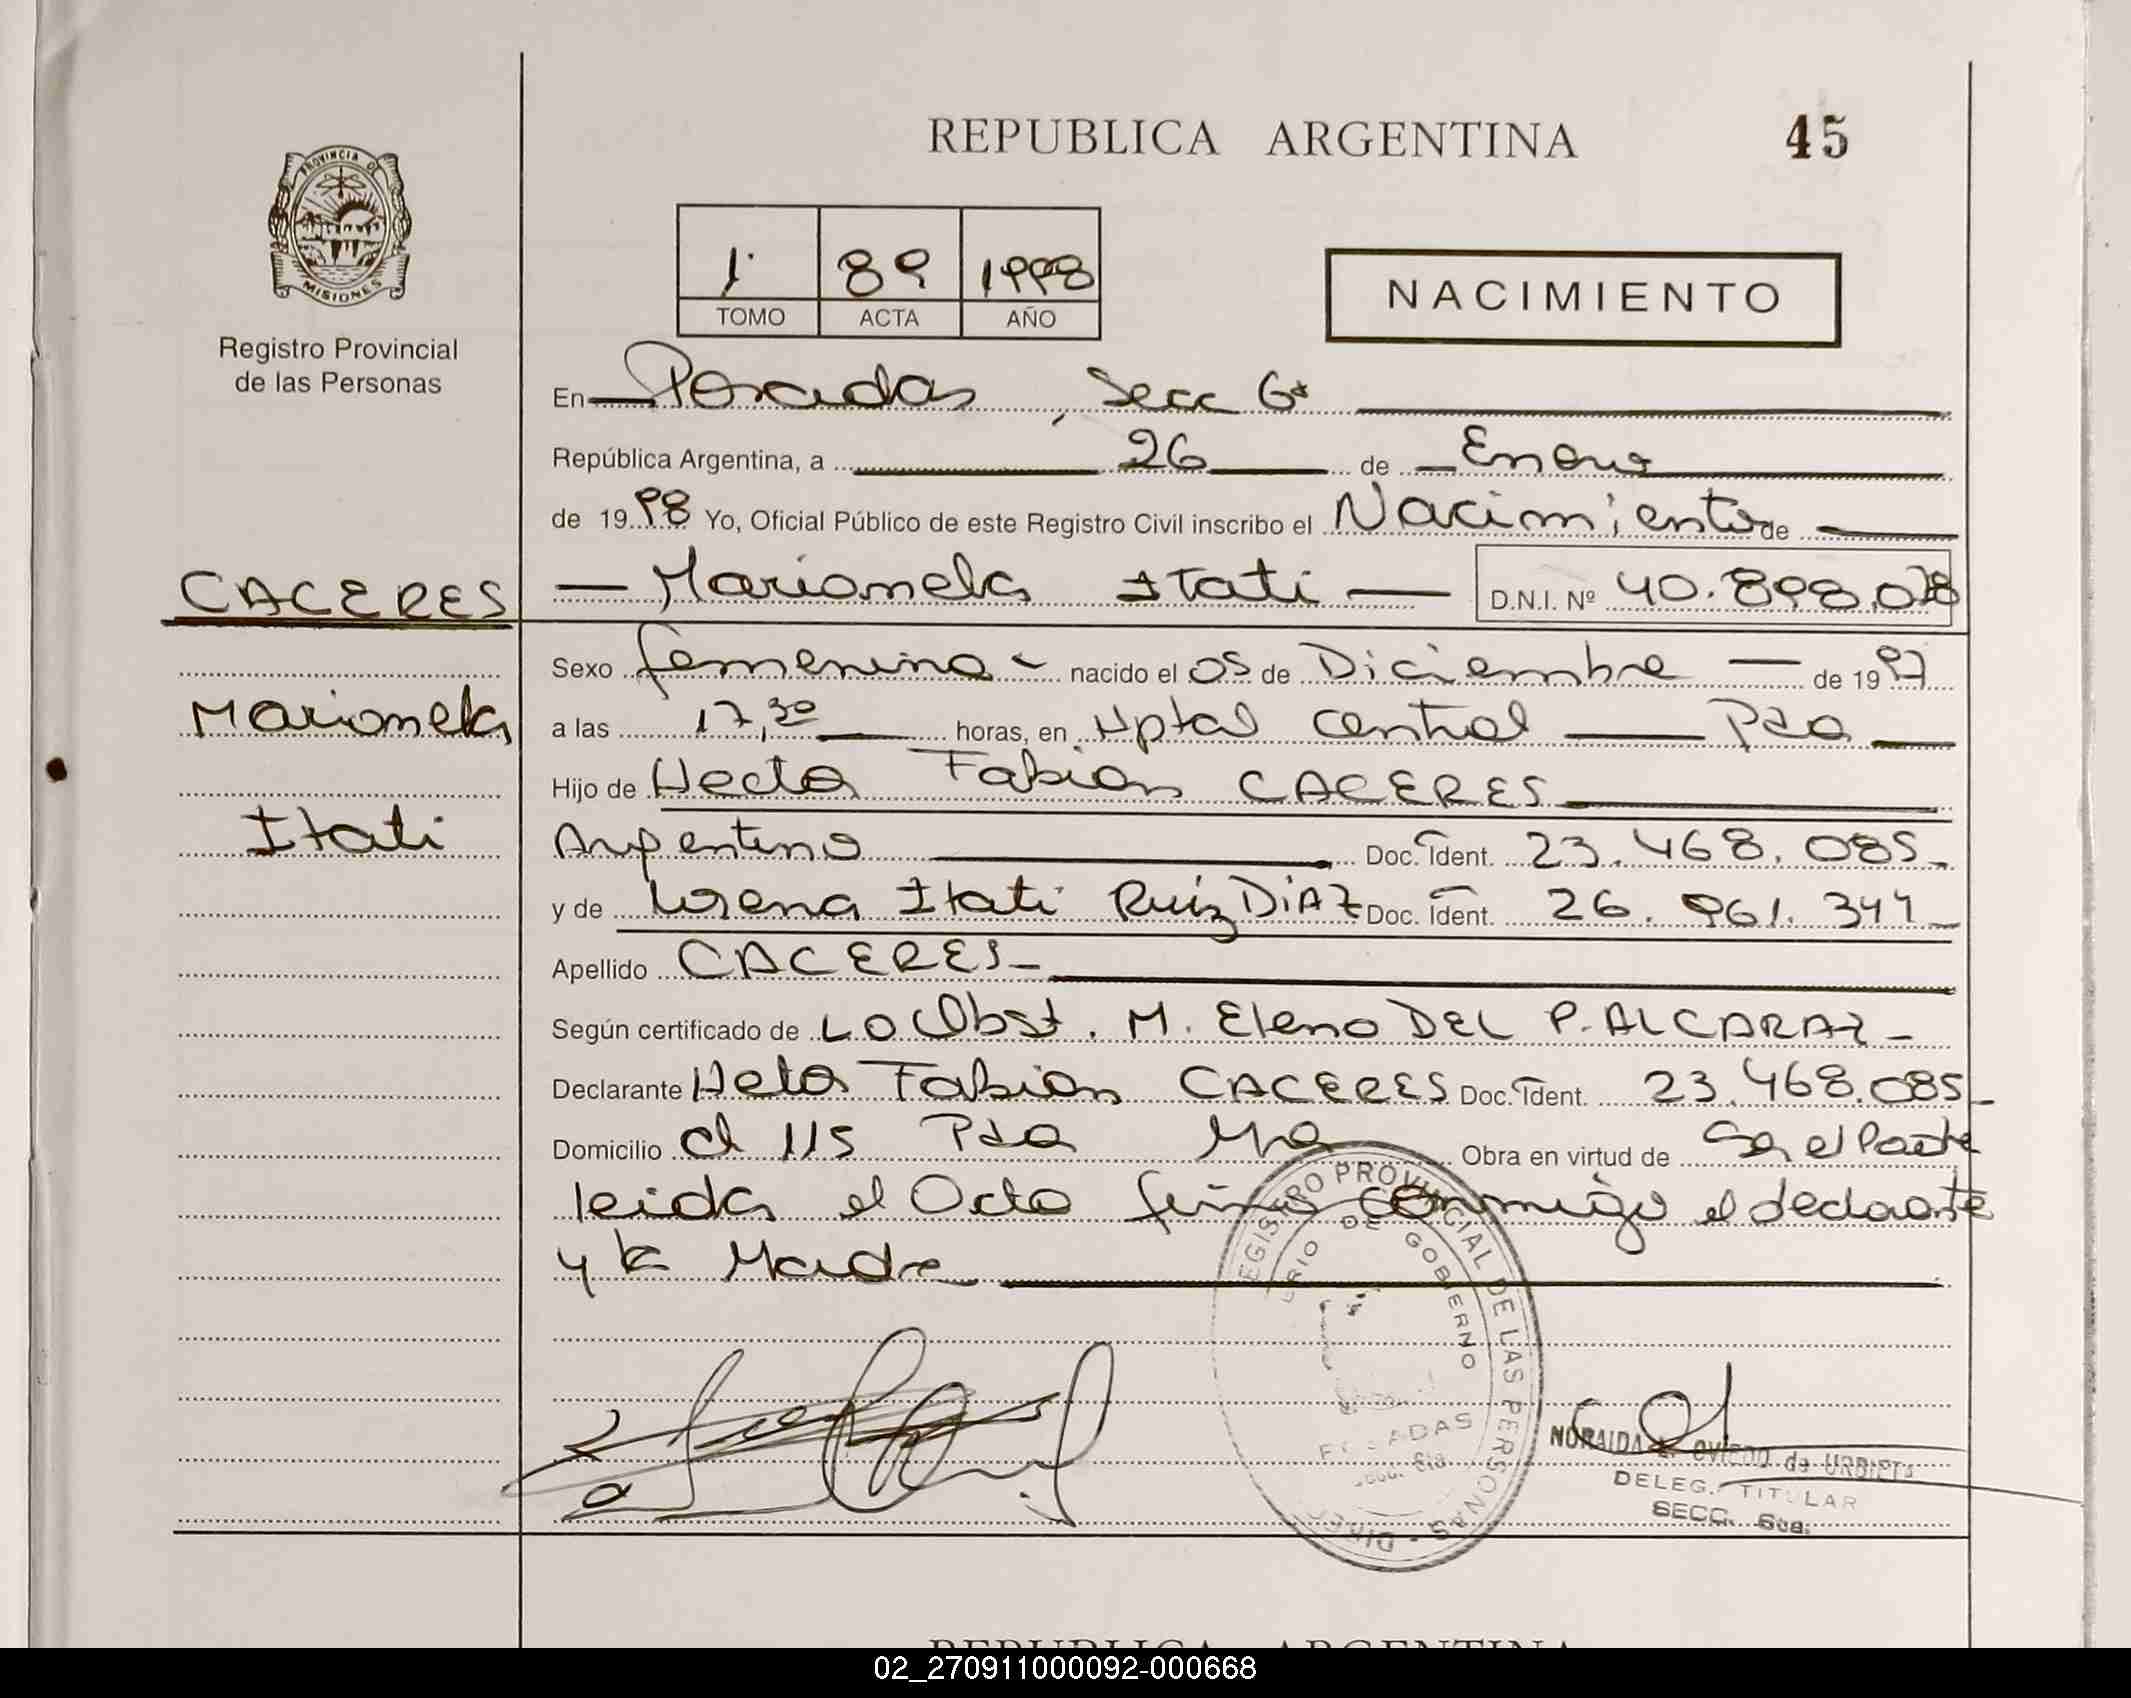 REPUBLICA ARGENTINA
45
PROVINCIA DE
MISIONES
Registro Provincial
de las Personas
1 89 1998
TOMO ACTA AÑO
NACIMIENTO
En Posadas, Secc 6ª
República Argentina, a 26 de Enero
de 1998 Yo, Oficial Público de este Registro Civil inscribo el Nacimiento de
CACERES
Marionela Itati D.N.I. Nº 40.898.078
Sexo femenino nacido el 05 de Diciembre de 1997
Marionela
a las 17,30 horas, en Hptal Central Pdas
Hijo de Hector Fabian CACERES
Itati
Argentino Doc. Ident. 23.468.085
y de Lorena Itati Ruiz DiAZ Doc. Ident. 26.961.344
Apellido CACERES
Según certificado de LA Obst. M. Elena DEL P. ALCARAZ
Declarante Hector Fabian CACERES Doc. Ident. 23.468.085
Domicilio Ch 115 Pdas Mnes Obra en virtud de Ser el Padre
leida el Acta firma conmigo el declarante
y la Madre
REGISTRO PROVINCIAL DE LAS PERSONAS
DE GOBIERNO
POSADAS
NORAIDA OVIEDO de URBIETA
DELEG. TITULAR
SECC. 6ta.
REPUBLICA ARGENTINA
02_270911000092-000668